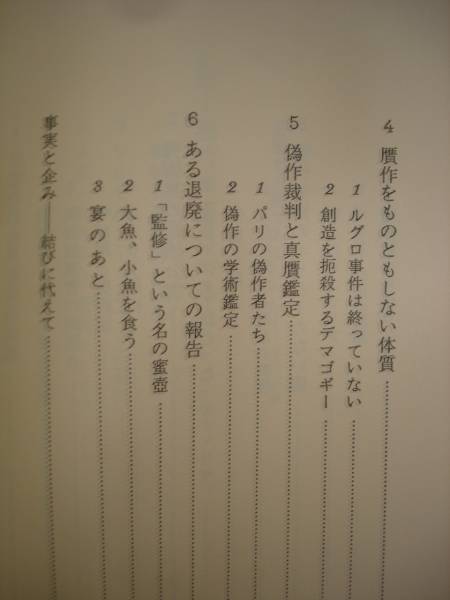 4 贋作をものともしない体質
1 ルグロ事件は終っていない
2 創造を扼殺するデマゴギー
5 偽作裁判と真贋鑑定
1 パリの偽作者たち
2 偽作の学術鑑定
6 ある退廃についての報告
1 「監修」という名の蜜壺
2 大魚、小魚を食う
3 宴のあと
事実と企み——結びに代えて